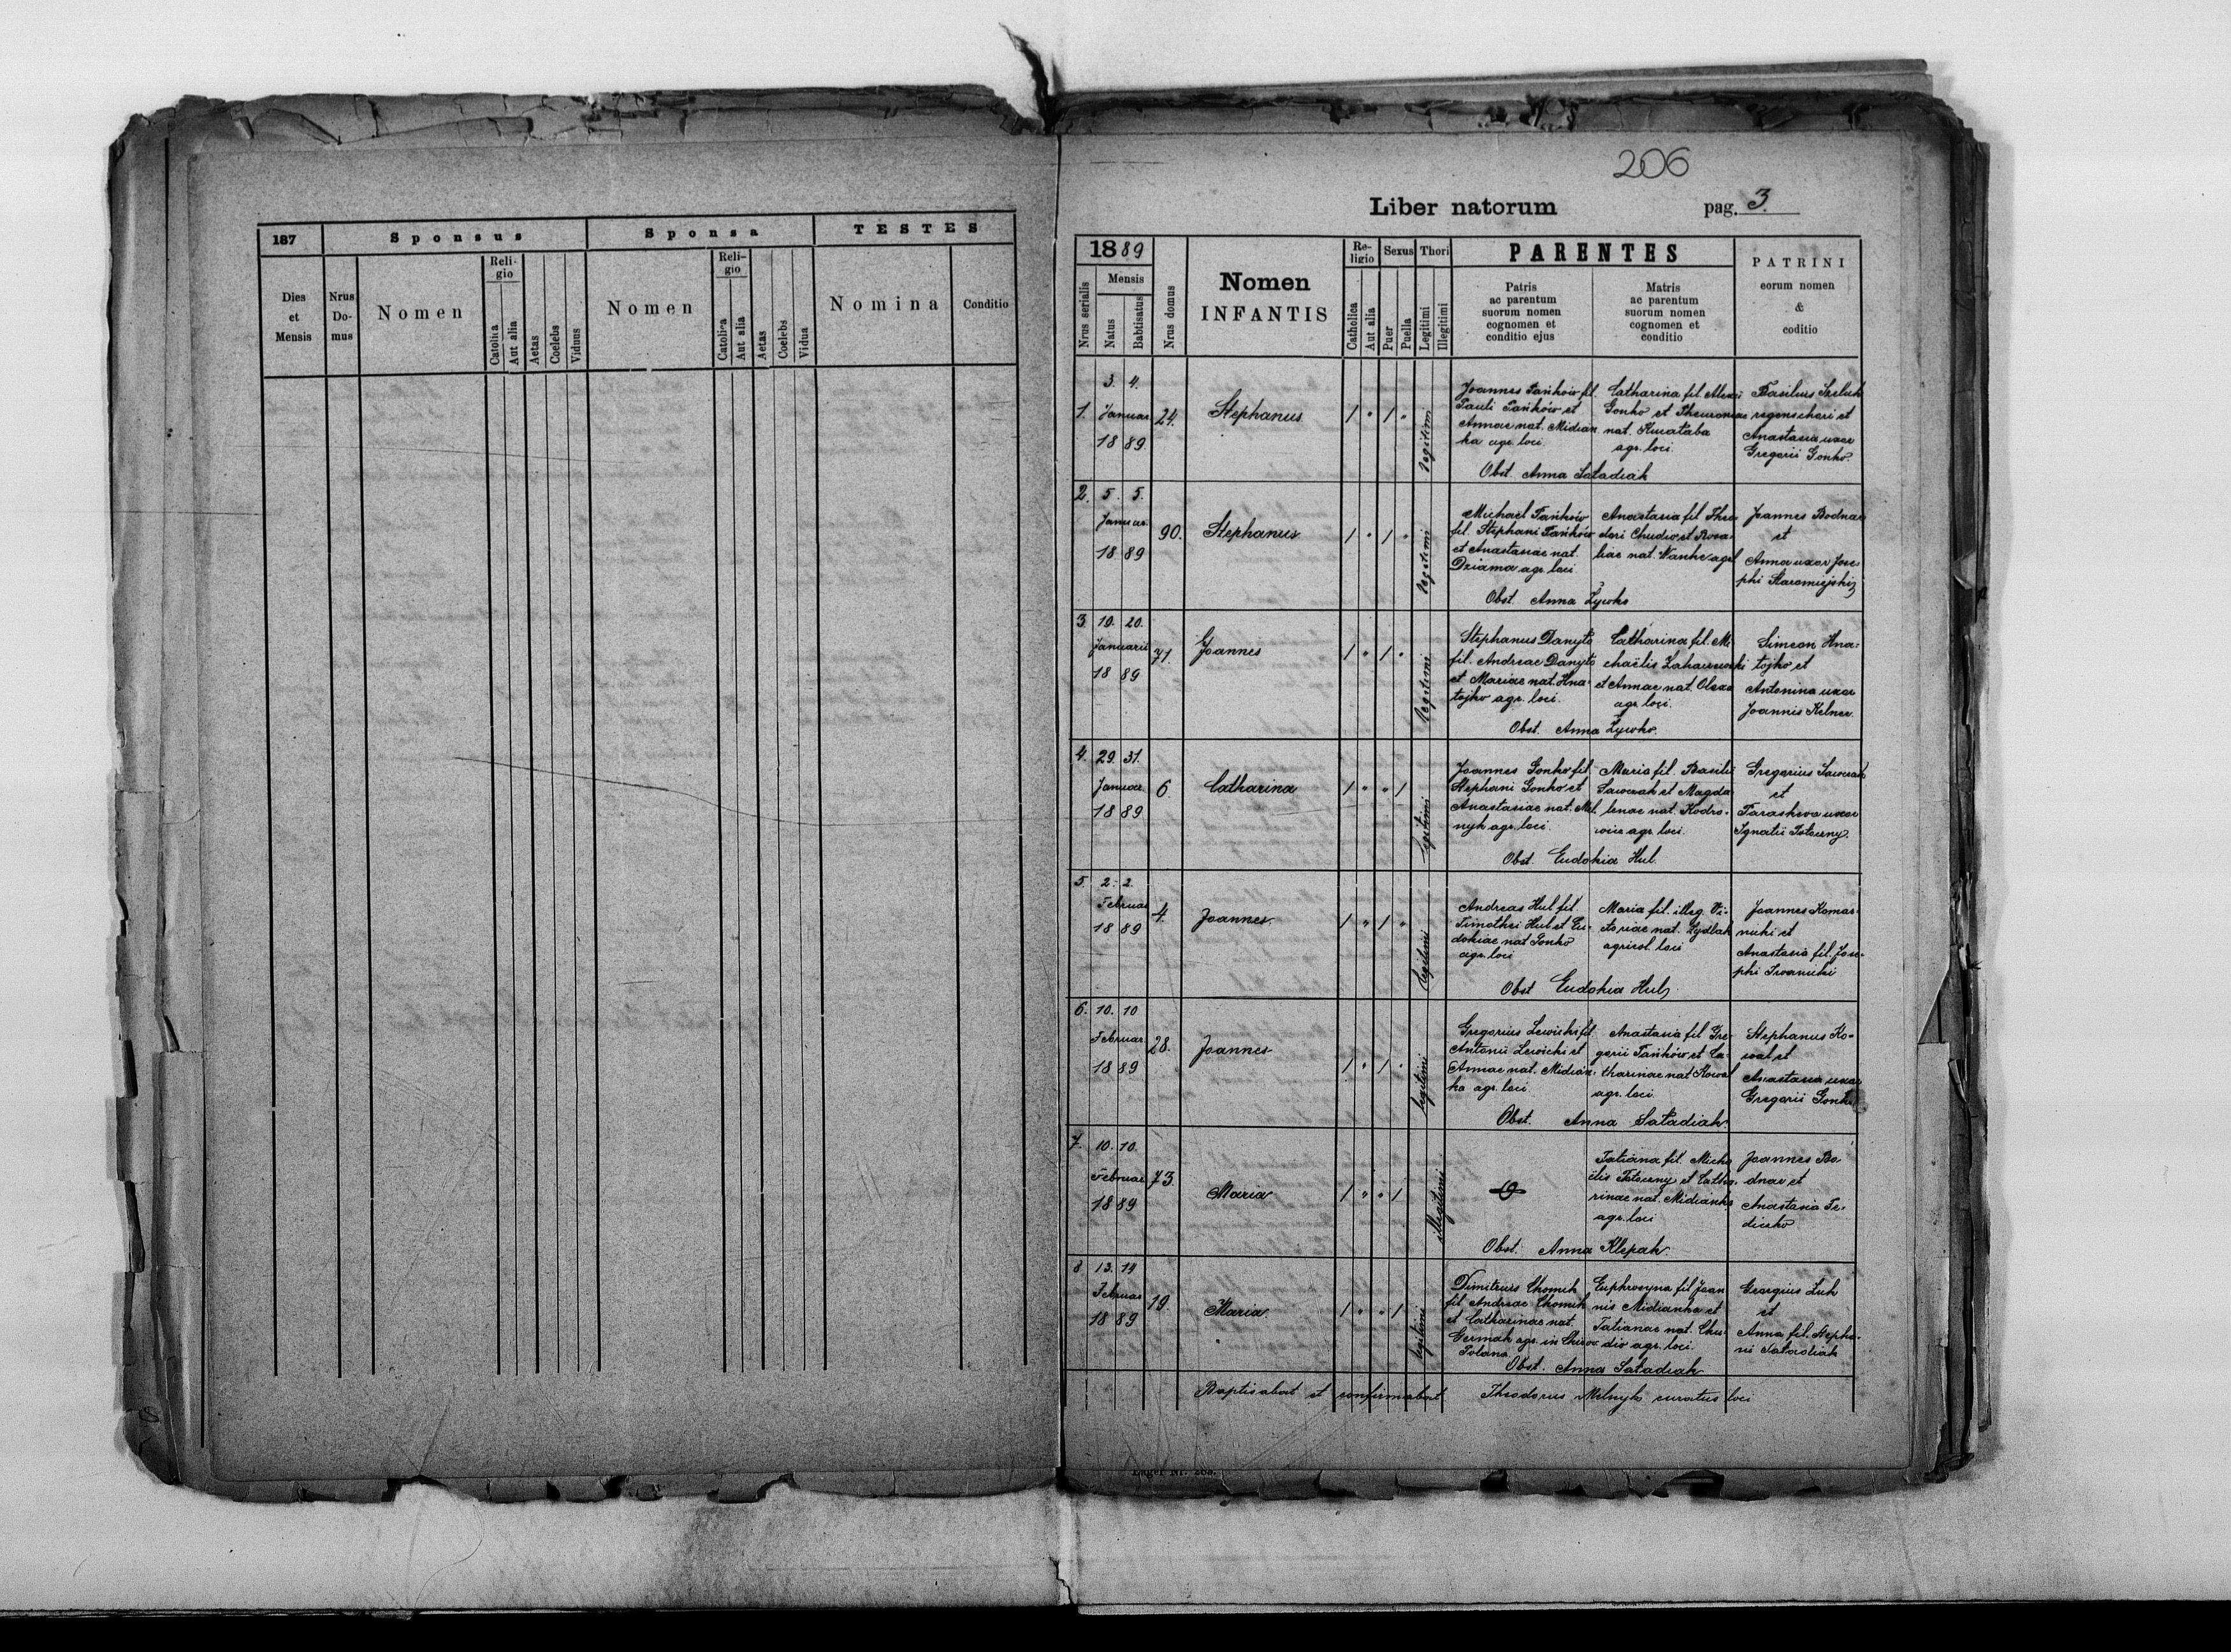 187
Sponsus
Sponsa
TESTES
Dies et Mensis
Nrus Do-mus
Nomen
Reli-gio
Catolica
Aut alia
Aetas
Coelebs
Viduus
Nomen
Reli-gio
Catolica
Aut alia
Aetas
Coelebs
Vidua
Nomina
Conditio
206
Liber natorum
pag. 3.
1889
Nrus serialis
Mensis
Natus
Babtisatus
Nrus domus
Nomen
INFANTIS
Re-ligio
Catholica
Aut alia
Sexus
Puer
Puella
Thori
Legitimi
Illegitimi
PARENTES
Patris
ac parentum
suorum nomen
cognomen et
conditio ejus
Matris
ac parentum
suorum nomen
cognomen et
conditio
PATRINI
eorum nomen
&
coditio
1.
3. 4.
Januar
18 89
24.
Stephanus
1 " 1 "
legitimi
Joannes Pańków fil.
Pauli Pańków et
Annae nat. Midian
ka agr. loci
Catharina fil. Alexii
Gonko et
nat.
agr. loci
Basilius
et
Anastasia uxor
Gregorii Gonko.
Obst. Anna Sаładiak
2.
5. 5.
Januar
18 89
90.
Stephanus
1 " 1 "
legitimi
Michael Pańków
fil. Stephani Pańków
et Anastasiae nat.
Dziama agr. loci
Anastasia fil. Theo
dori Chudio et Rosa-
liae nat. agr.
Joannes Bodnar
et
Anna uxor Jose-
phi Staromiejski
Obst. Anna Żywko
3.
19. 20.
Januarii
18 89
71.
Joannes
1 " 1 "
legitimi
Stephanus Danyło
fil. Andreae Danyło
et Mariae nat. Hna-
tojko agr. loci.
Catharina fil. Mi
chaëlis
et Annae nat. Olexa
agr. loci.
Simeon Hna-
tojko et
Antonina uxor
Joannis Kelner.
Obst. Anna Żywko.
4.
29. 31.
Januar
18 89
6.
Catharina
1 " " 1
legitimi
Joannes Gonko fil.
Stephani Gonko et
Anastasiae nat. Mel
nyk agr. loci.
Maria fil. Basilii
et Magda
lenae nat. Kodro-
agr. loci.
Gregorius
et
Paraskeva uxor
Ignatii
Obst. Eudokia Hul.
5.
2. 2.
Februar
18 89
4.
Joannes.
1 " 1 "
legitimi
Andreas Hul fil.
Timothei Hul et Eu-
dokiae nat Gonko
agr. loci
Maria fil. illeg. Vi-
ctoriae nat.
agricol. loci
Joannes Komar-
nicki et
Anastasia fil. Jose-
phi Iwanicki
Obst Eudokia Hul
6.
10. 10
Februar
18 89
28.
Joannes
1 " 1 "
legitimi
Gregorius Lewicki fil
Antonii Lewicki et
Annae nat. Midian-
ka agr. loci
Anastasia fil Gre-
gorii Pańków et Ca-
tharinae nat Kowal
agr. loci.
Stephanus Ko-
wal et
Anastasia uxor
Gregorii Gonko
Obst. Anna Sаładiak.
7.
10. 10.
Februar
18 89
73.
Maria
1 " " 1
illegitimi
Tatiana fil. Micha
ëlis et Catha-
rinae nat. Midianka
agr. loci
Joannes Bo-
dnar et
Anastasia Fe-
Obst. Anna Klepak.
8
13. 14
Februar
18 89
19.
Maria.
1 " " 1
legitimi
Dimitrius Chomik
fil. Andreae Chomik
et Catharinae nat.
Germak agr. in
Polana.
Euphrosyna fil Joan
nis Midianka et
Tatianae nat. Chu-
dio agr. loci.
Georgius Luk
et
Anna fil. Stepha-
ni Sаładiak
Obst. Anna Sаładiak
Baptisabat et confirmabat Theodorus Melnyk curatus loci